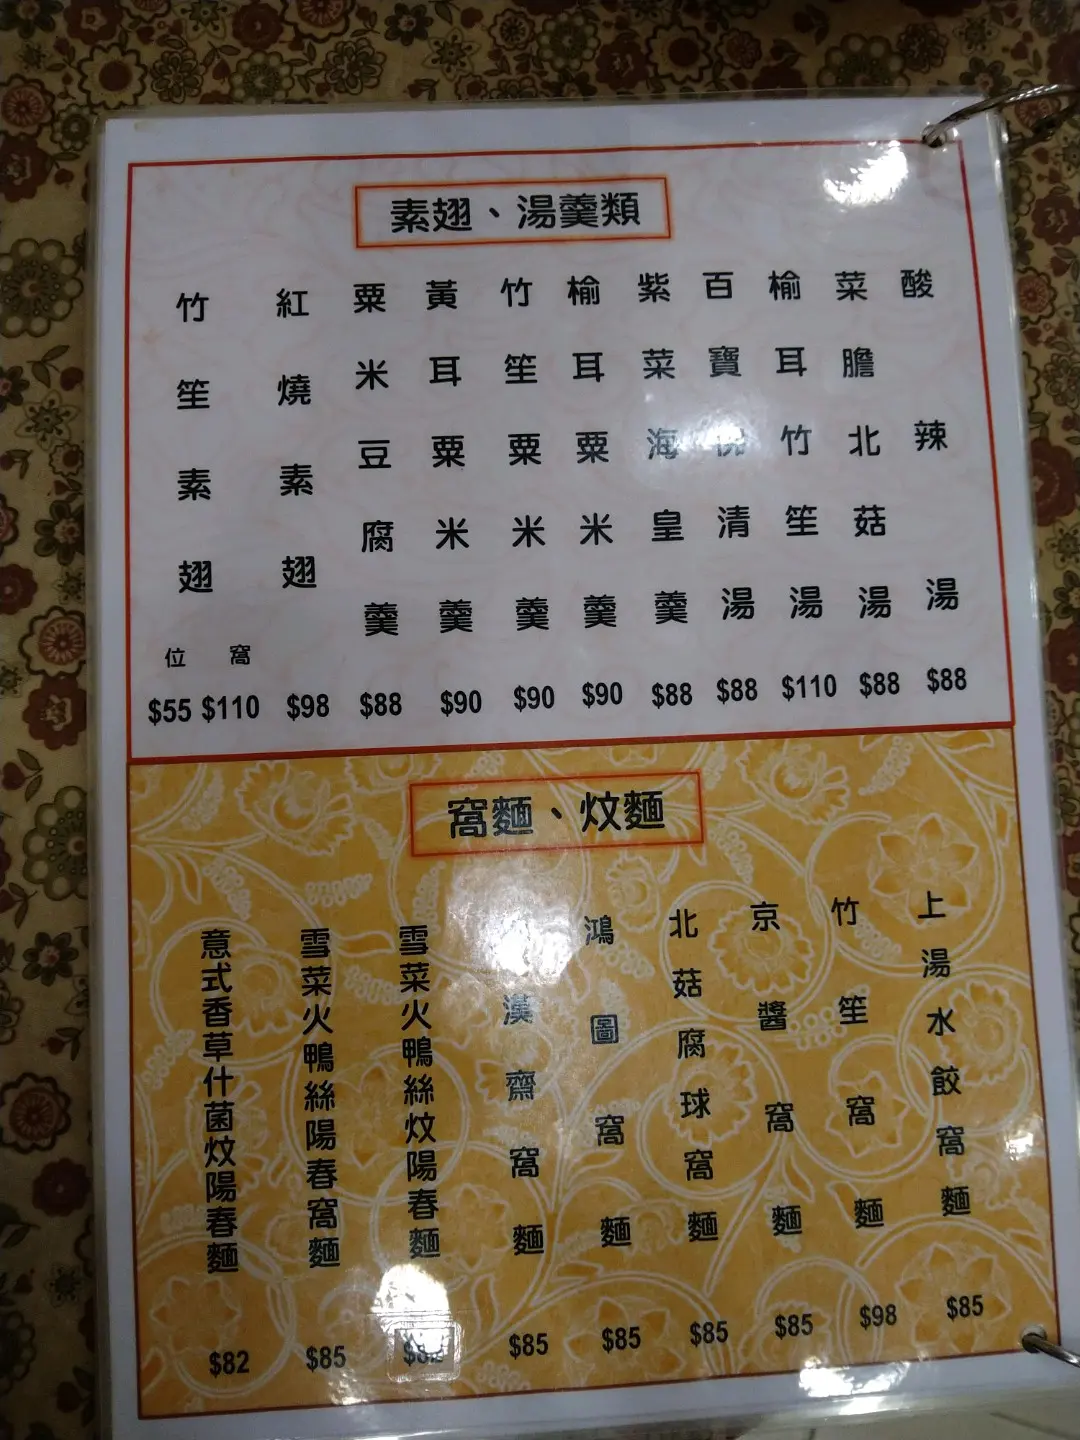 素翅、湯羹類
酸辣湯
$88
菜膽北菇湯
$88
榆耳竹笙湯
$110
百寶清湯
$88
紫菜海皇羹
$88
榆耳粟米羹
$90
竹笙粟米羹
$90
黃耳粟米羹
$90
粟米豆腐羹
$88
紅燒素翅
$98
竹笙素翅
位 窩
$55 $110
窩麵、炆麵
上湯水餃窩麵
$85
竹笙窩麵
$98
京醬窩麵
$85
北菇腐球窩麵
$85
鴻圖窩麵
$85
漢齋窩麵
$85
雪菜火鴨絲炆陽春麵
雪菜火鴨絲陽春窩麵
$85
意式香草什菌炆陽春麵
$82